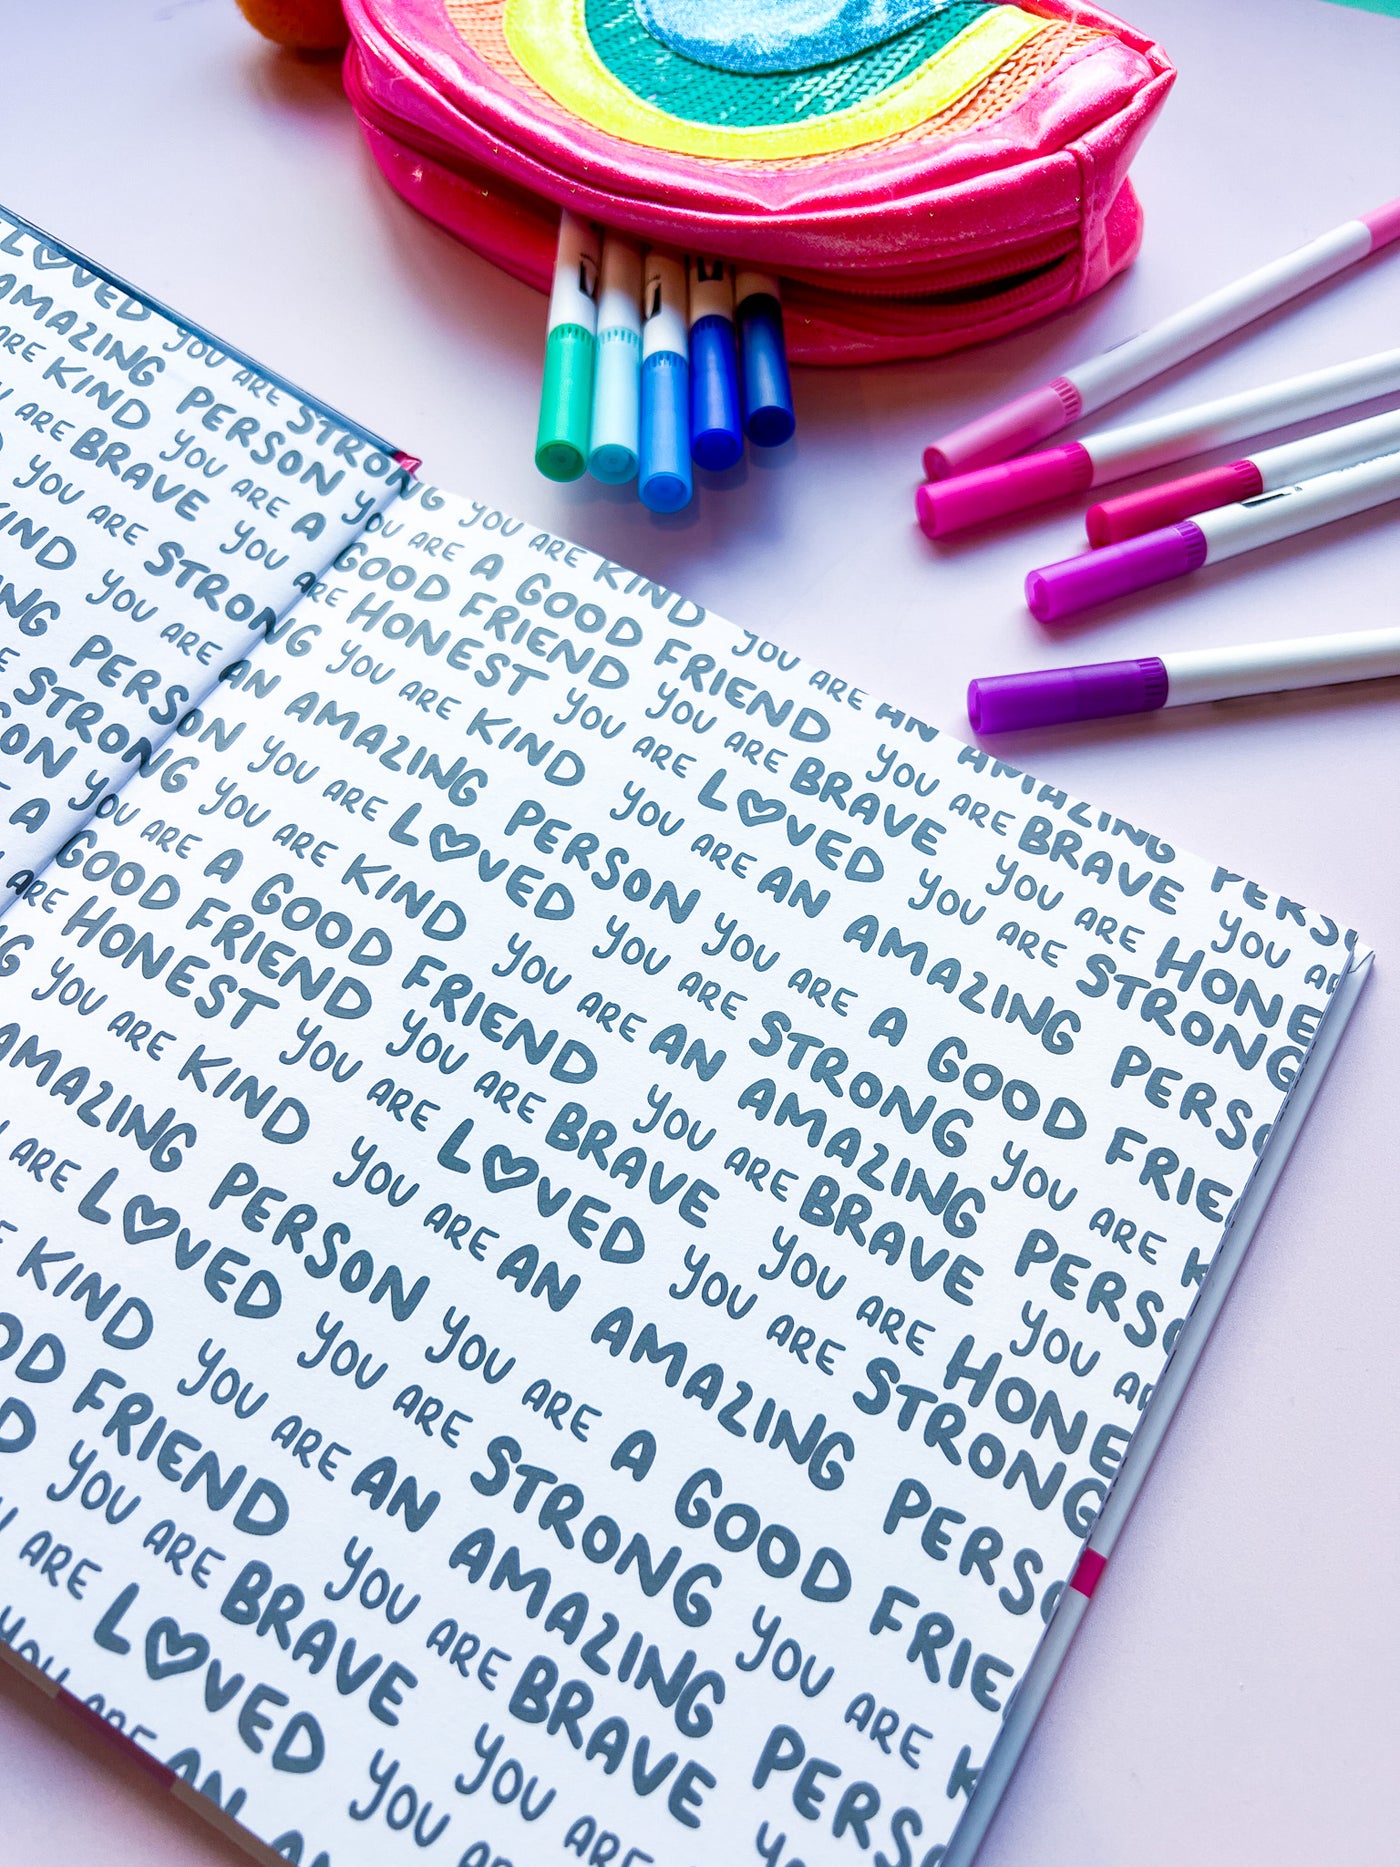 LOVED YOU ARE STRONG YOU ARE KIND YOU ARE AN AMAZING PERS
AMAZING PERSON YOU ARE A GOOD FRIEND YOU ARE BRAVE YOU AR
ARE KIND YOU ARE A GOOD FRIEND YOU ARE BRAVE YOU ARE HONE
ARE BRAVE YOU ARE HONEST YOU ARE LOVED YOU ARE STRONG
YOU ARE STRONG YOU ARE KIND YOU ARE AN AMAZING PERS
KIND YOU ARE AN AMAZING PERSON YOU ARE A GOOD FRIE
NG PERSON YOU ARE LOVED YOU ARE STRONG YOU ARE K
STRONG YOU ARE KIND YOU ARE AN AMAZING PERS
SON YOU ARE A GOOD FRIEND YOU ARE BRAVE YOU AR
A GOOD FRIEND YOU ARE BRAVE YOU ARE HONE
ARE HONEST YOU ARE LOVED YOU ARE STRONG
NG YOU ARE KIND YOU ARE AN AMAZING PERS
AMAZING PERSON YOU ARE A GOOD FRIE
ARE LOVED YOU ARE STRONG YOU ARE K
KIND YOU ARE AN AMAZING PERS
OD FRIEND YOU ARE BRAVE
D YOU ARE BRAVE YOU ARE
ARE LOVED YOU
YOU ARE AN